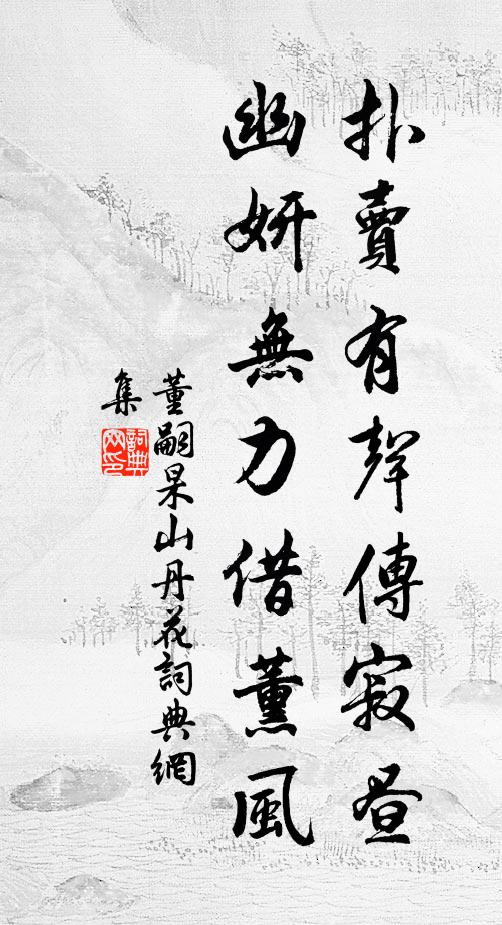 扑賣有聲傳寂晝
幽妍無力借薰風
董嗣杲山丹花詞典網
集
詞典網印